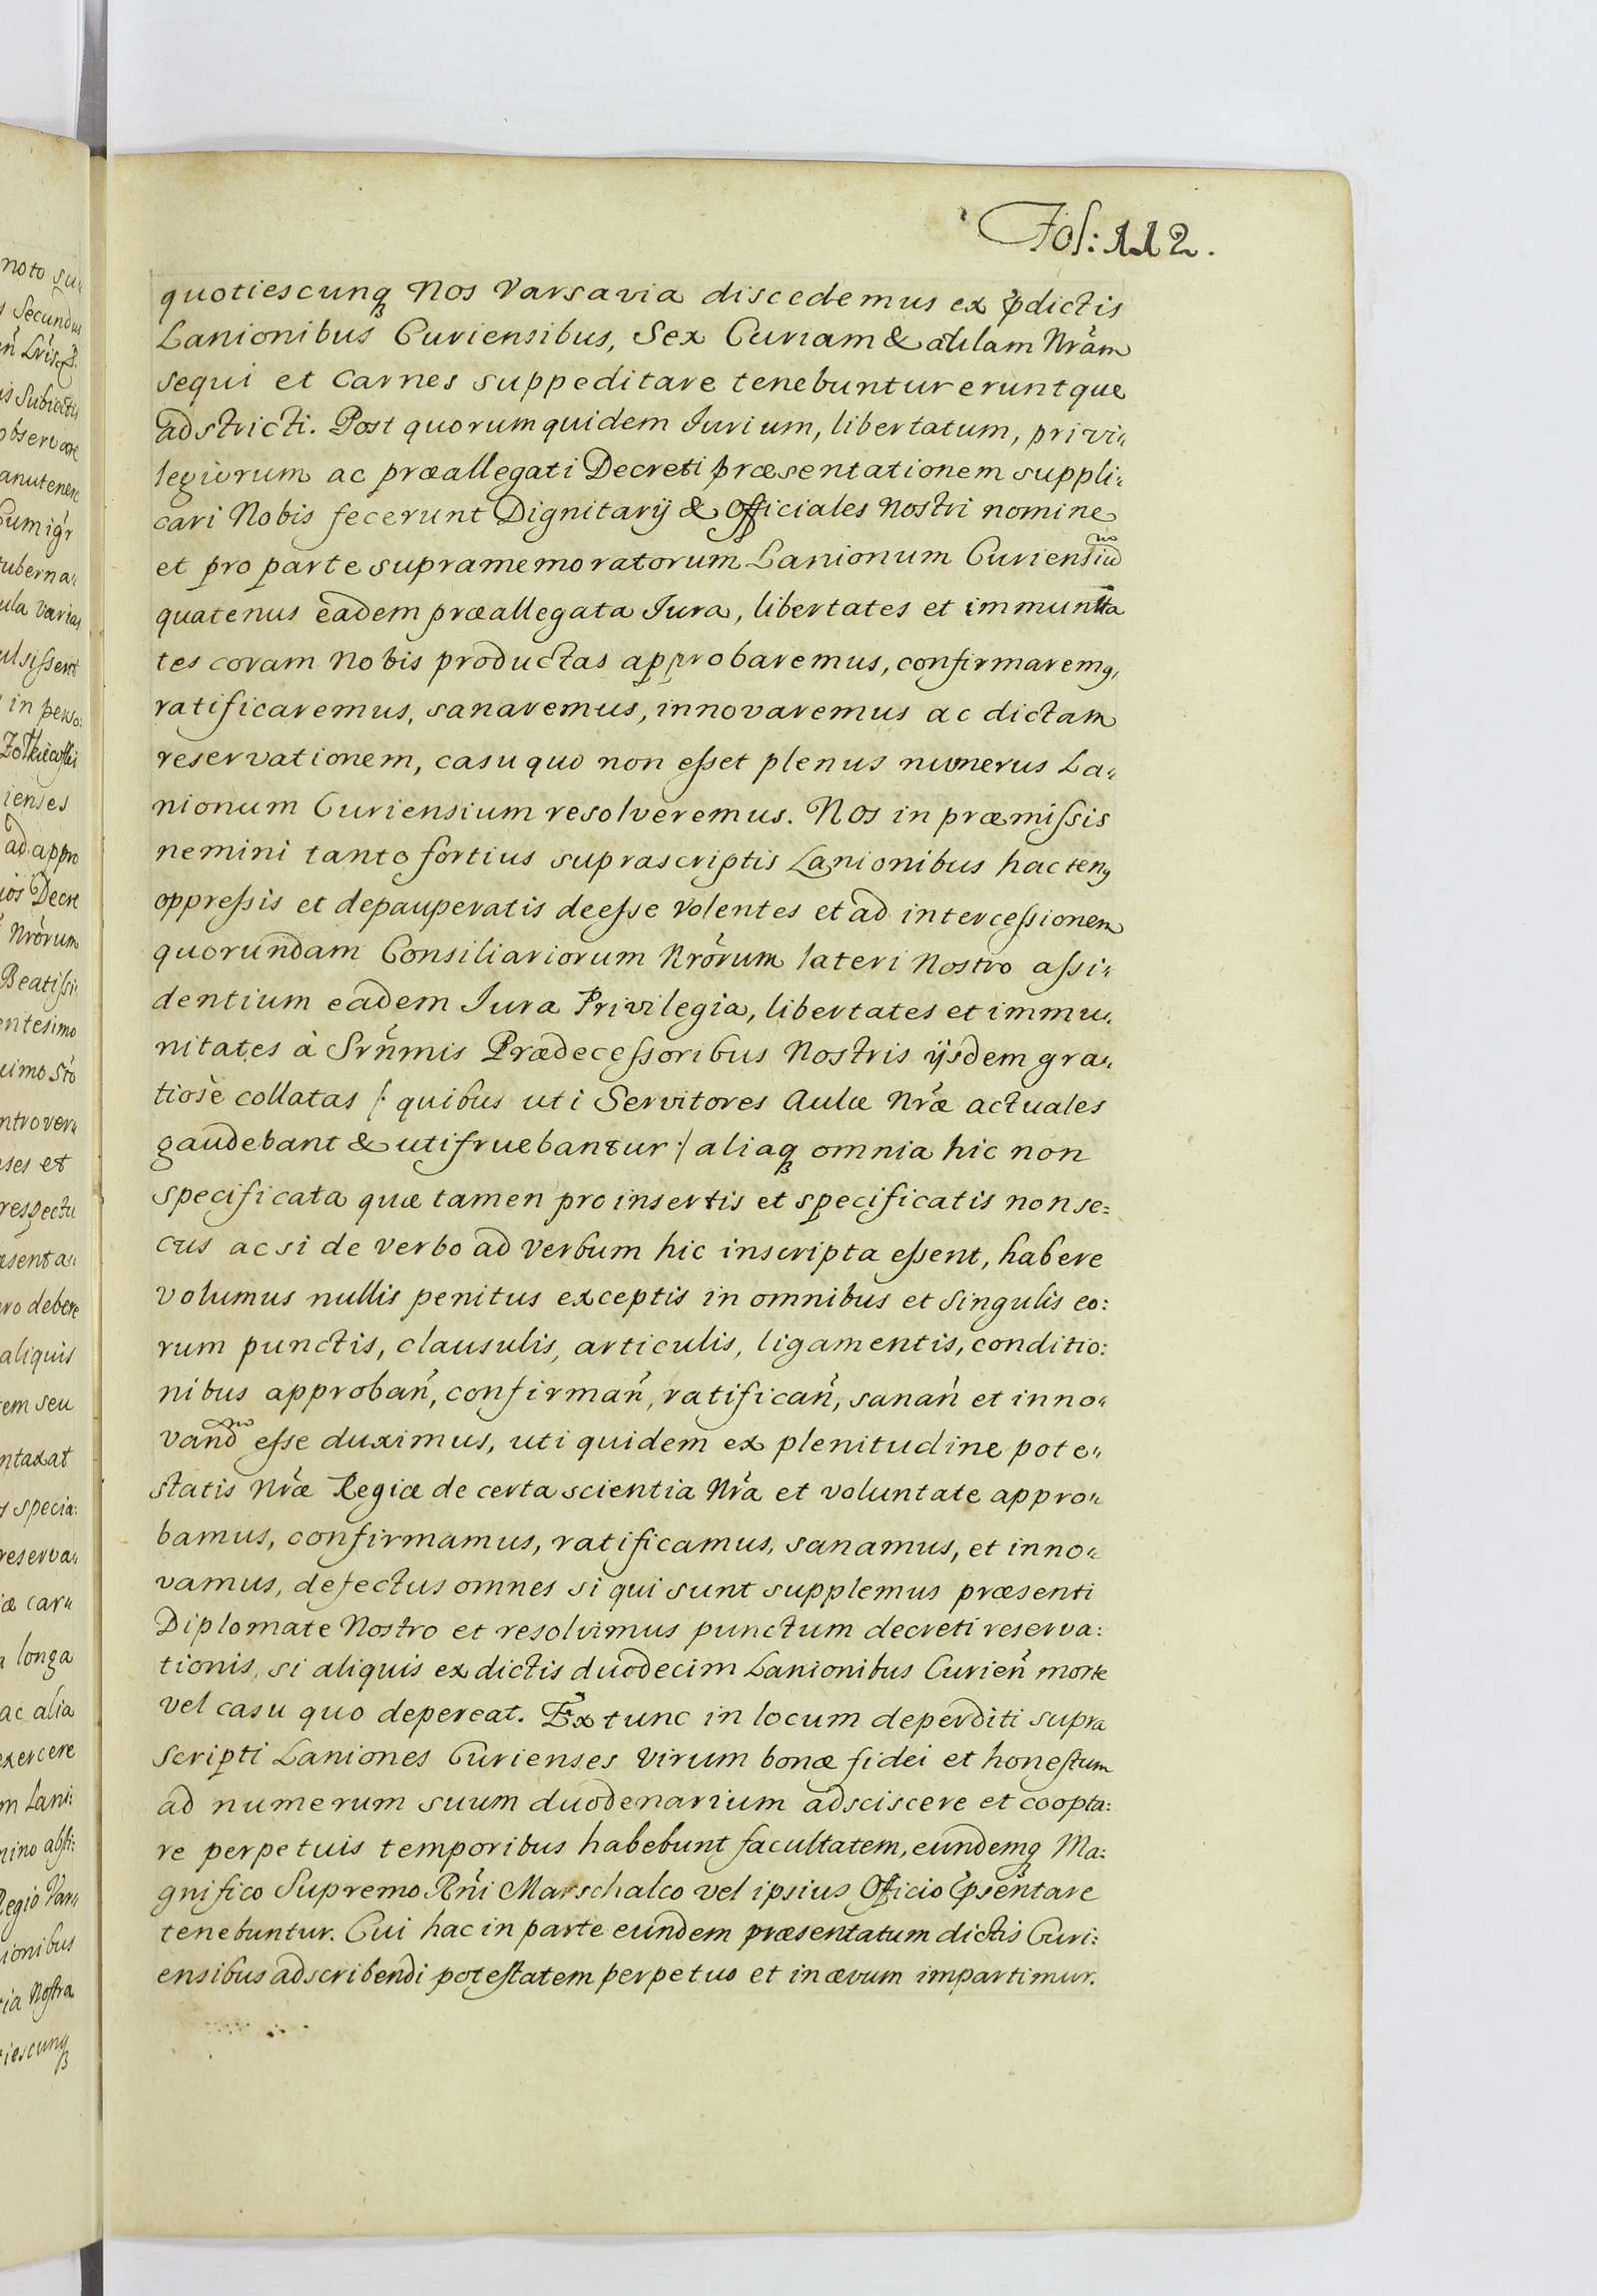 Fol: 112.
quotiescunqꝫ Nos Varsavia discedemus ex p̃dictis
Lanionibus Curiensibus, Sex Curiam & aulam Nrãm
sequi et Carnes suppeditare tenebuntur eruntque
adstricti. Post quorum quidem Iurium, libertatum, privi„
legiorum ac præallegati Decreti præsentationem suppli„
cari Nobis fecerunt Dignitarij & Officiales Nostri nomine
et pro parte supramemoratorum Lanionum Curiensiũ
quatenus eadem præallegata Iura, libertates et immunita
tes coram Nobis productas approbaremus, confirmaremꝯ,
ratificaremus, sanaremus, innovaremus ac dictam
reservationem, casu quo non eſset plenus numerus La„
nionum Curiensium resolveremus. Nos in præmiſsis
nemini tanto fortius suprascriptis Lanionibus hactenꝯ
oppreſsis et depauperatis deeſse volentes et ad interceſsionem
quorundam Consiliariorum Nrõrum lateri Nostro aſsi„
dentium eadem Iura Privilegia, libertates et immu„
nitates à Srñmis Prædeceſsoribus Nostris ijsdem gra„
tiosè collatas /: quibus uti Servitores Aulæ Nrǣ actuales
gaudebant & utifruebantur :/ aliaqꝫ omnia hic non
specificata quæ tamen pro insertis et specificatis non se=
cus ac si de verbo ad verbum hic inscripta eſsent, habere
volumus nullis penitus exceptis in omnibus et singulis eo:
rum punctis, clausulis, articulis, ligamentis, conditio:
nibus approbañ, confirmañ, ratificañ, sanañ et inno„
vand̃ eſse duximus, uti quidem ex plenitudine pote„
statis Nrǣ Regiæ de certa scientia Nrã et voluntate appro„
bamus, confirmamus, ratificamus, sanamus, et inno„
vamus, defectus omnes si qui sunt supplemus præsenti
Diplomate Nostro et resolvimus punctum decreti reserva:
tionis, si aliquis ex dictis duodecim Lanionibus Curieñ morte
vel casu quo depereat. Ex tunc in locum deperditi supra
scripti Laniones Curienses virum bonæ fidei et honeſtum
ad numerum suum duodenarium adsciscere et coopta:
re perpetuis temporibus habebunt facultatem, eundemqꝫ Ma:
gnifico Supremo Rñi Marschalco vel ipsius Officio p̃sentare
tenebuntur. Cui hac in parte eundem præsentatum dictis Curi:
ensibus adscribendi poteſtatem perpetuo et in ævum impartimur.